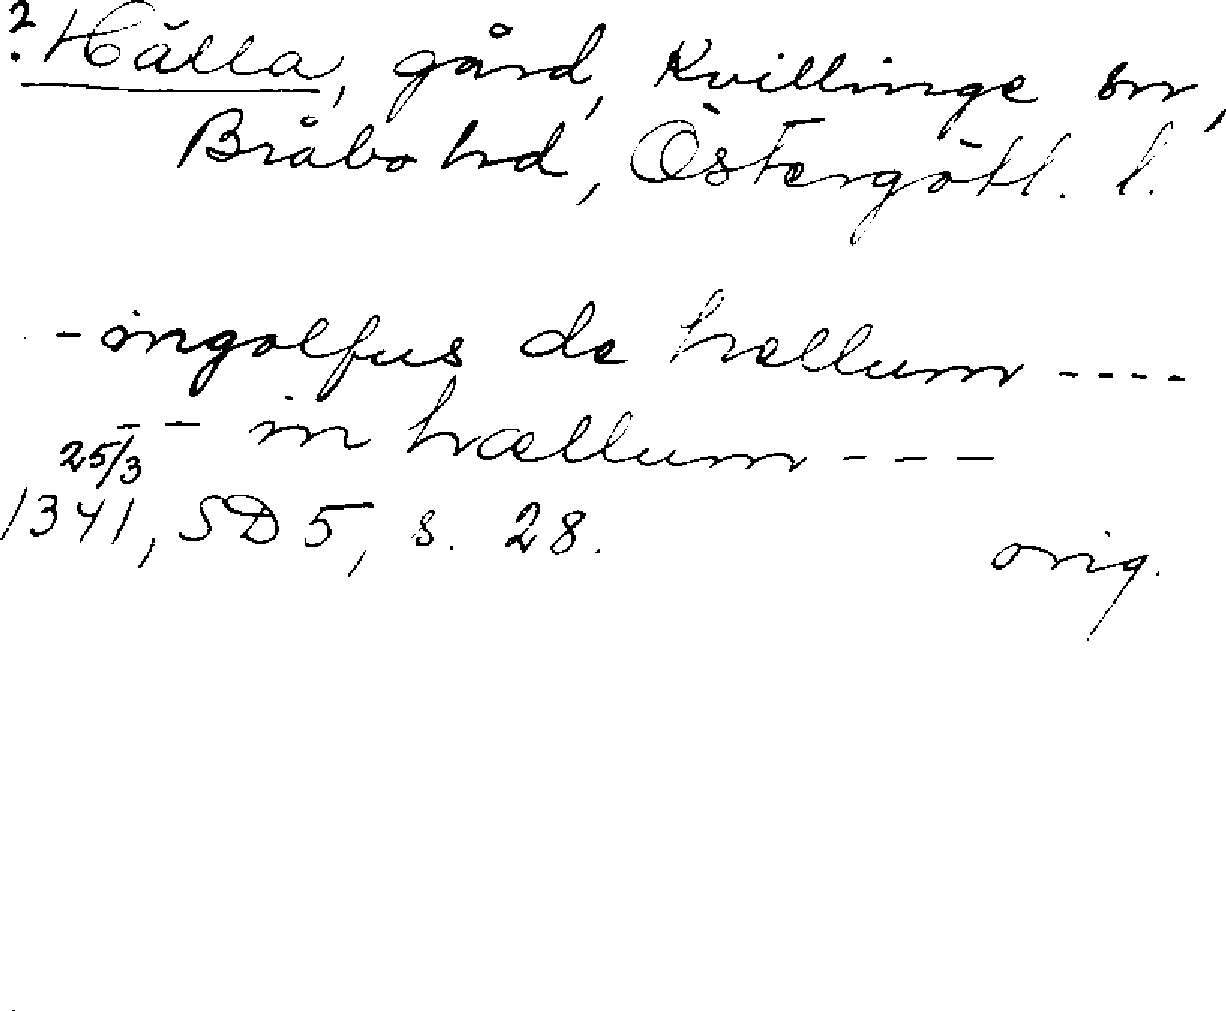 ? Hälla, gård, Kvillinge sn,
Bråbo hd, Östergötl. l.
- ingolfus de hællum ----
- - in hællum ---
25/3
1341, SD 5, s. 28.
orig.